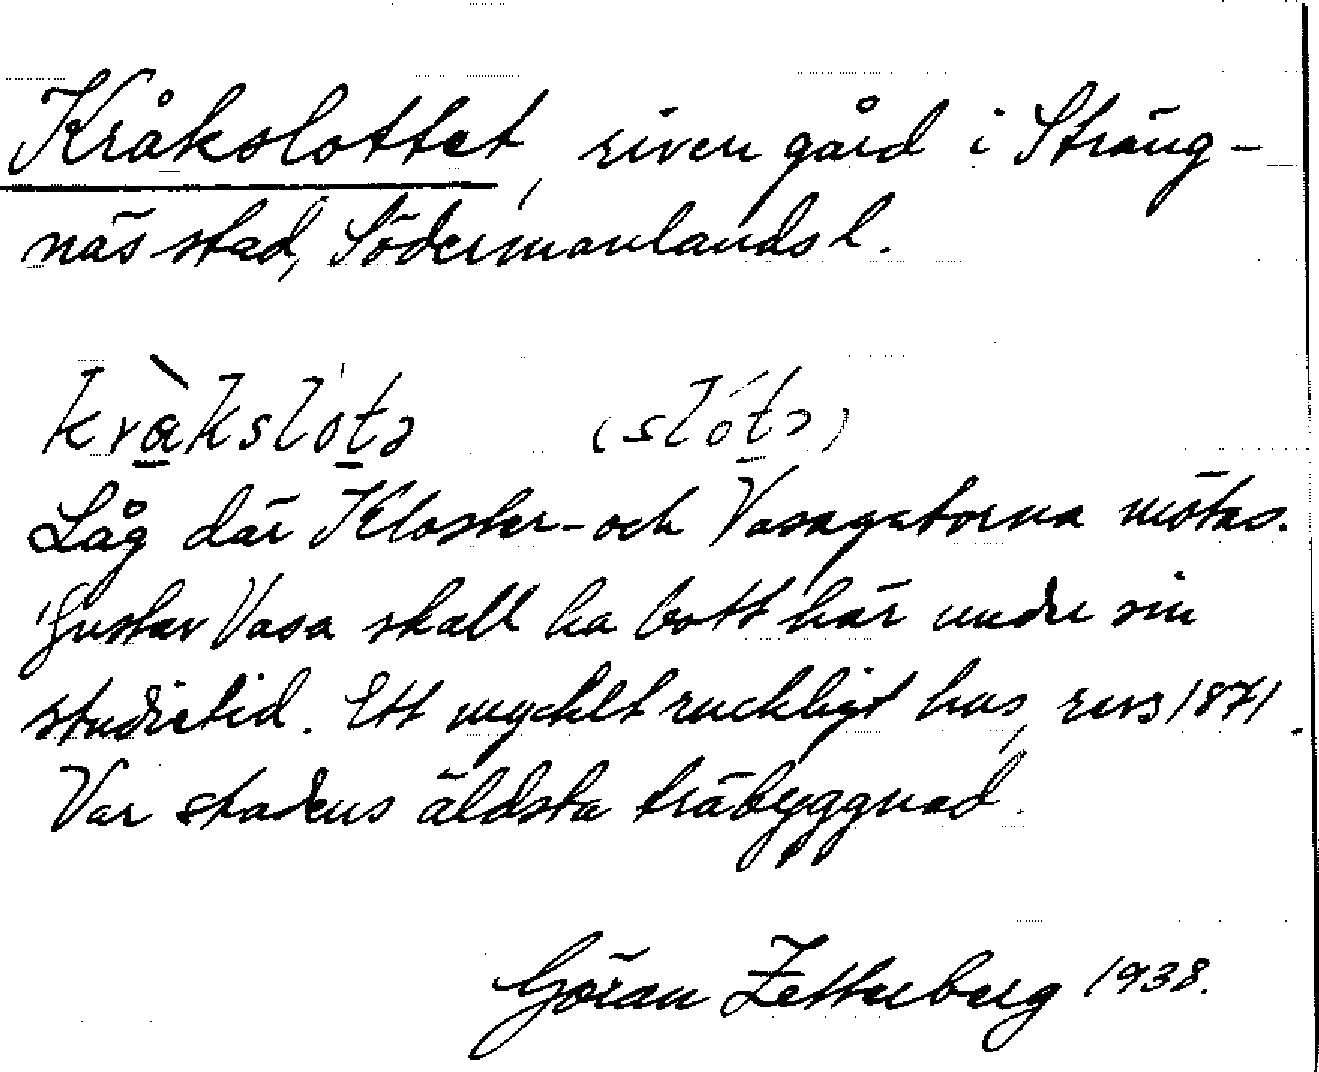 Kråkslottet, riven gård i Sträng-
näs stad, Södermanlands l.
kràkslotə (slótə)
Låg där Kloster- och Vasagatorna mötas.
Gustav Vasa skall ha bott här under sin
studietid. Ett mycket ruckligt hus, revs 1871.
Var stadens äldsta träbyggnad.
Göran Zetterberg 1938.